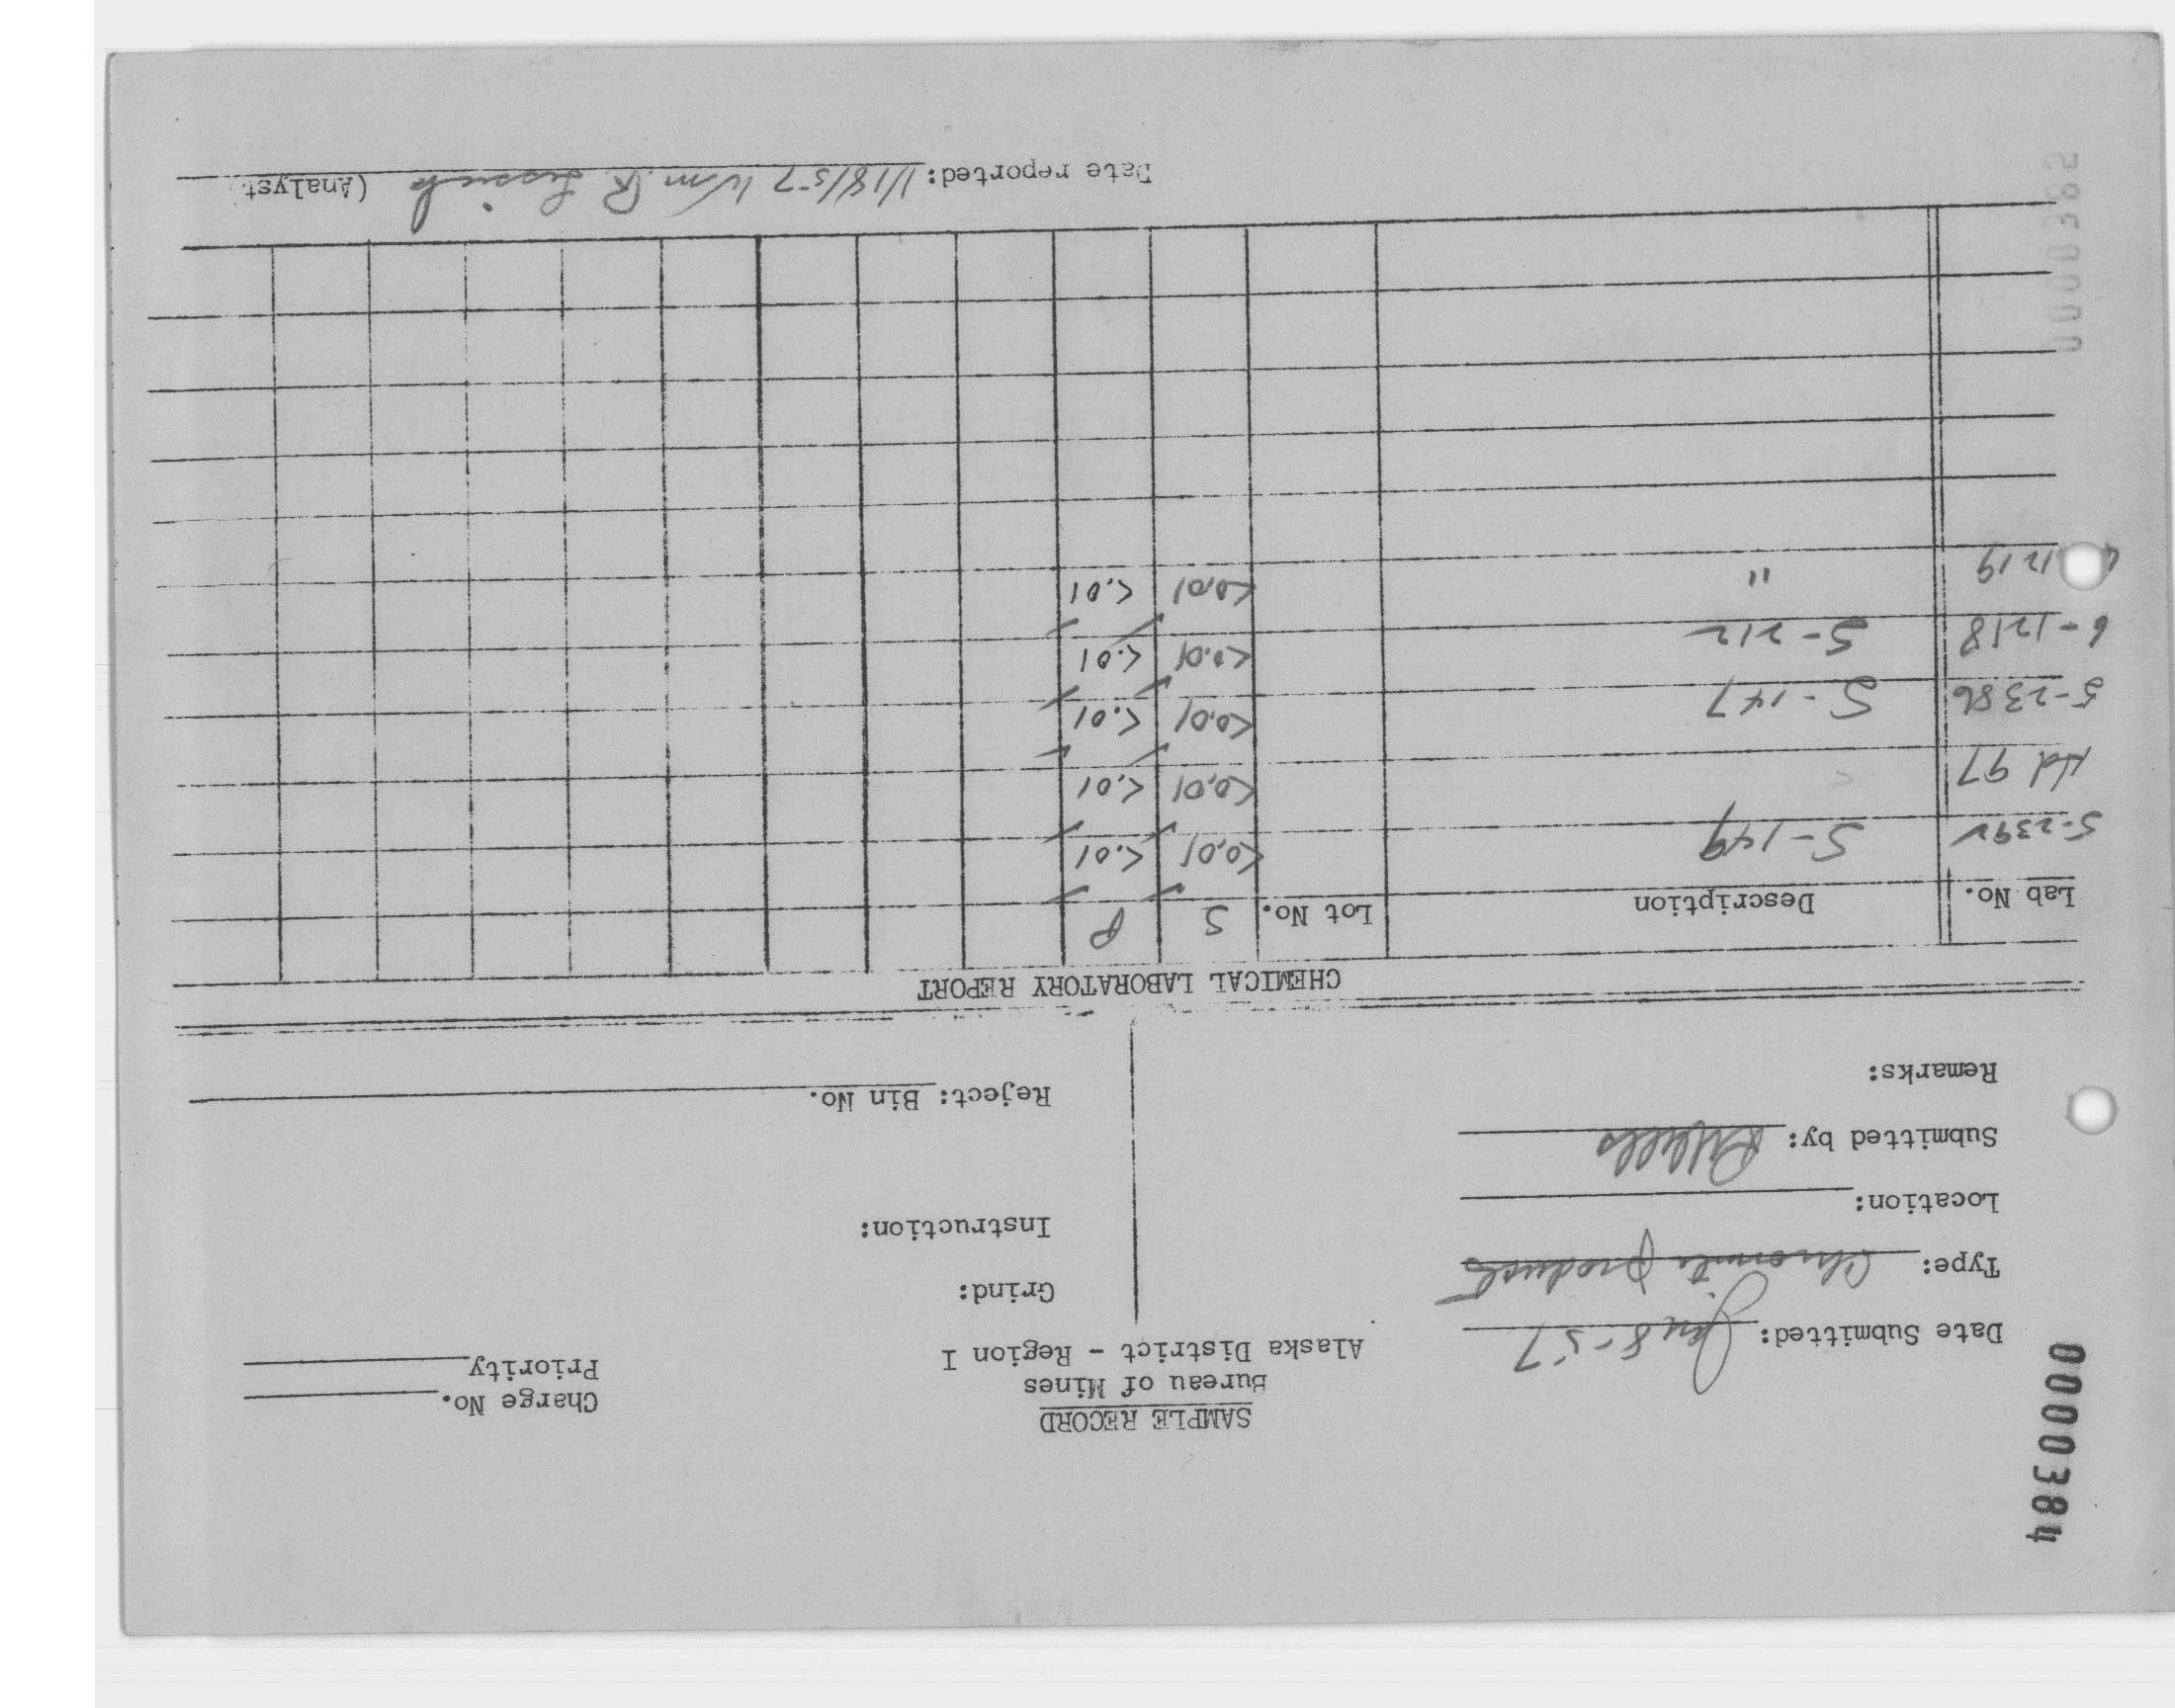 0000384
SAMPLE RECORD
Bureau of Mines
Alaska District - Region I
Charge No.
Priority
Date Submitted: Jan 8-57
Type: Chromite products
Location:
Submitted by:
Remarks:
Grind:
Instruction:
Reject: Bin No.
CHEMICAL LABORATORY REPORT
Lab No. Description Lot No. S P
5-2392 S-149 <0.01 <.01
Hd 97 <0.01 <.01
5-2386 S-147 <0.01 <.01
6-1218 S-212 <0.01 <.01
1219 " <0.01 <.01
Date reported: 1/18/57 Wm. R. (Analyst
0000385